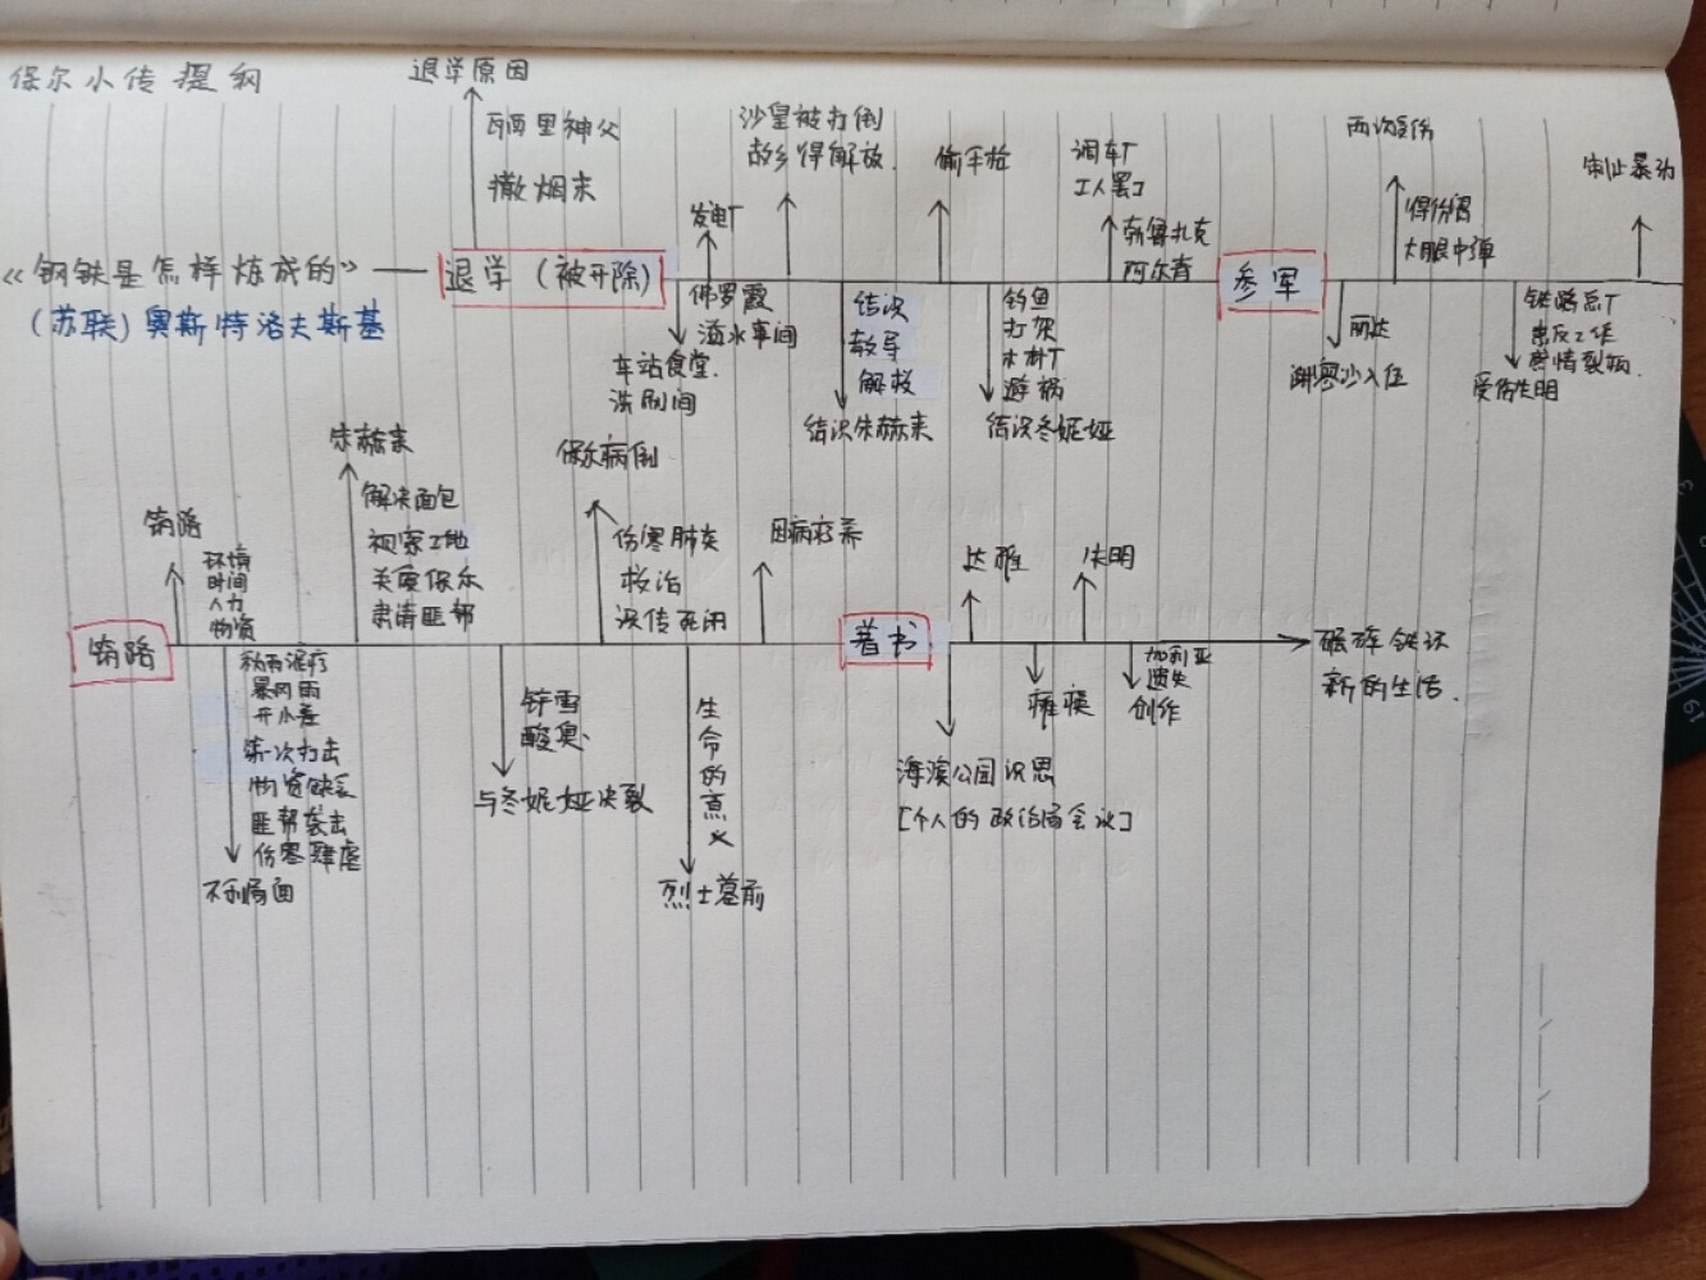 保尔小传提纲
退学原因
瓦西里神父
撒烟末
沙皇被打倒
故乡得解放.
偷手枪
调车厂
工人罢工
两次受伤
制止暴动
发电厂
勃鲁扎克
阿尔青
得伤寒
大腿中弹
《钢铁是怎样炼成的》
退学(被开除)
参军
(苏联)奥斯特洛夫斯基
佛罗霞
溢水事间
车站食堂.
洗刷间
结识
教导
解救
结识朱赫来
钓鱼
打架
木材厂
避祸
结识冬妮娅
丽达
谢廖沙入伍
铁路总厂
感情裂痕.
受伤失明
朱赫来
解决面包
视察工地
关爱保尔
肃清匪帮
保尔病倒
伤寒肺炎
救治
误传死闻
因病疗养
达雅
失明
筑路
环境
时间
人力
物资
筑路
著书
砸碎铁环
新的生活.
秋雨泥泞
暴风雨
开小差
第一次打击
物资缺乏
匪帮袭击
伤寒肆虐
不利局面
铲雪
酸臭
与冬妮娅决裂
生命的意义
烈士墓前
海滨公园沉思
[个人的政治局会议]
瘫痪
加利亚
遗失
创作